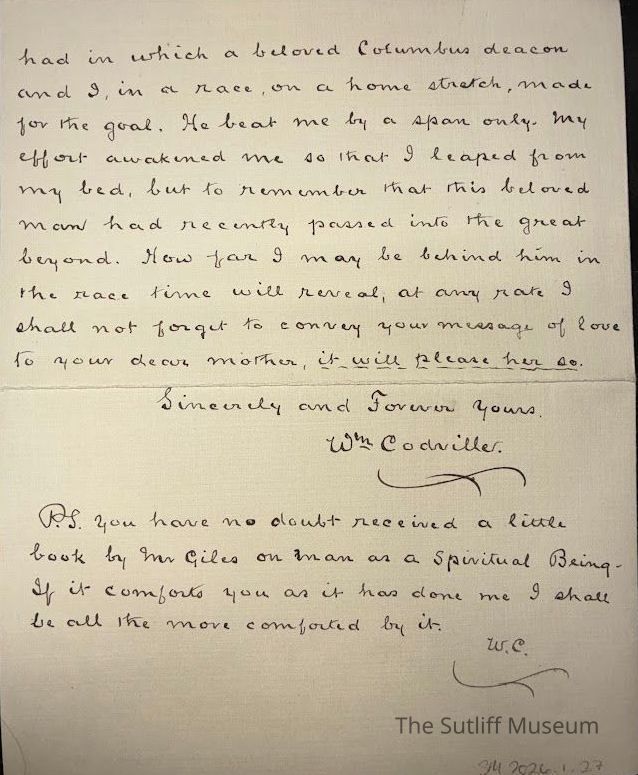 had in which a beloved Columbus deacon
and I, in a race, on a home stretch, made
for the goal. He beat me by a span only. My
effort awakened me so that I leaped from
my bed, but to remember that this beloved
man had recently passed into the great
beyond. How far I may be behind him in
the race time will reveal, at any rate I
shall not forget to convey your message of love
to your dear mother, it will please her so.
Sincerely and Forever yours.
Wm Codviller.
P.S. you have no doubt received a little
book by Mr Giles on man as a Spiritual Being-
If it comforts you as it has done me I shall
be all the more comforted by it.
W.C.
The Sutliff Museum
2026.1.27